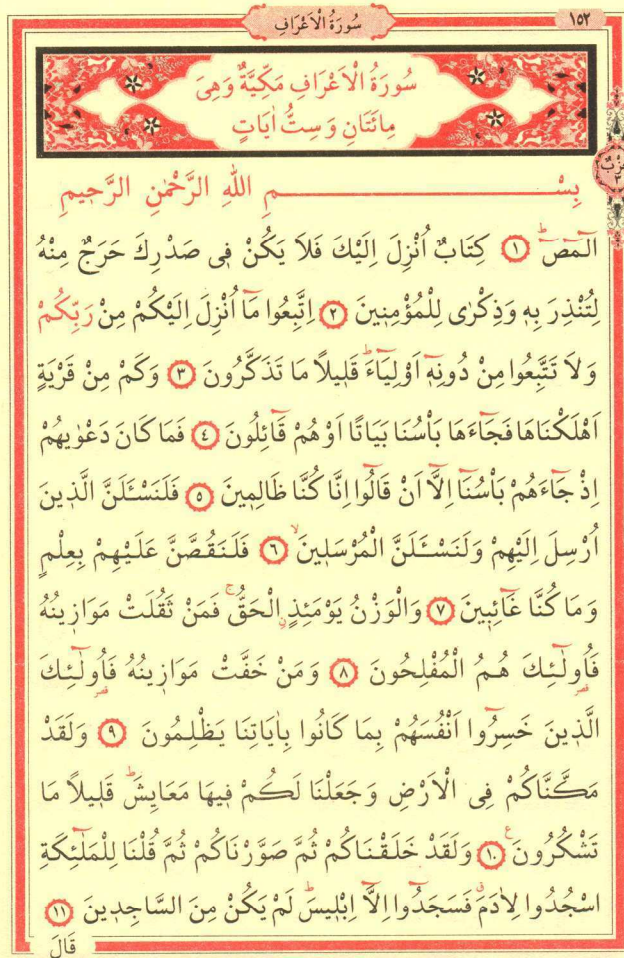 سُورَةُ الْاَعْرَافِ
١٥٢
سُورَةُ الْاَعْرَافِ مَكِّيَّةٌ وَهِىَ
مِائَتَانِ وَسِتُّ اٰيَاتٍ
بِسْــــــــمِ اللّٰهِ الرَّحْمٰنِ الرَّحٖيمِ
الٓمٓصٓ ۜ ﴿١﴾ كِتَابٌ اُنْزِلَ اِلَيْكَ فَلَا يَكُنْ فٖى صَدْرِكَ حَرَجٌ مِنْهُ
لِتُنْذِرَ بِهٖ وَذِكْرٰى لِلْمُؤْمِنٖينَ ﴿٢﴾ اِتَّبِعُوا مَٓا اُنْزِلَ اِلَيْكُمْ مِنْ رَبِّكُمْ
وَلَا تَتَّبِعُوا مِنْ دُونِهٖٓ اَوْلِيَٓاءَ ؕ قَلٖيلًا مَا تَذَكَّرُونَ ﴿٣﴾ وَكَمْ مِنْ قَرْيَةٍ
اَهْلَكْنَاهَا فَجَٓاءَهَا بَاْسُنَا بَيَاتًا اَوْ هُمْ قَٓائِلُونَ ﴿٤﴾ فَمَا كَانَ دَعْوٰيهُمْ
اِذْ جَٓاءَهُمْ بَاْسُنَٓا اِلَّٓا اَنْ قَالُٓوا اِنَّا كُنَّا ظَالِمٖينَ ﴿٥﴾ فَلَنَسْـَٔلَنَّ الَّذٖينَ
اُرْسِلَ اِلَيْهِمْ وَلَنَسْـَٔلَنَّ الْمُرْسَلٖينَ ۙ ﴿٦﴾ فَلَنَقُصَّنَّ عَلَيْهِمْ بِعِلْمٍ
وَمَا كُنَّا غَٓائِبٖينَ ﴿٧﴾ وَالْوَزْنُ يَوْمَئِذٍ الْحَقُّ ۚ فَمَنْ ثَقُلَتْ مَوَازٖينُهُ
فَاُولٰٓئِكَ هُمُ الْمُفْلِحُونَ ﴿٨﴾ وَمَنْ خَفَّتْ مَوَازٖينُهُ فَاُولٰٓئِكَ
الَّذٖينَ خَسِرُٓوا اَنْفُسَهُمْ بِمَا كَانُوا بِاٰيَاتِنَا يَظْلِمُونَ ﴿٩﴾ وَلَقَدْ
مَكَّنَّاكُمْ فِى الْاَرْضِ وَجَعَلْنَا لَكُمْ فٖيهَا مَعَايِشَ ؕ قَلٖيلًا مَا
تَشْكُرُونَ ﴿١٠﴾ وَلَقَدْ خَلَقْنَاكُمْ ثُمَّ صَوَّرْنَاكُمْ ثُمَّ قُلْنَا لِلْمَلٰٓئِكَةِ
اسْجُدُوا لِاٰدَمَ فَسَجَدُٓوا اِلَّٓا اِبْلٖيسَ ؕ لَمْ يَكُنْ مِنَ السَّاجِدٖينَ ﴿١١﴾
قَالَ